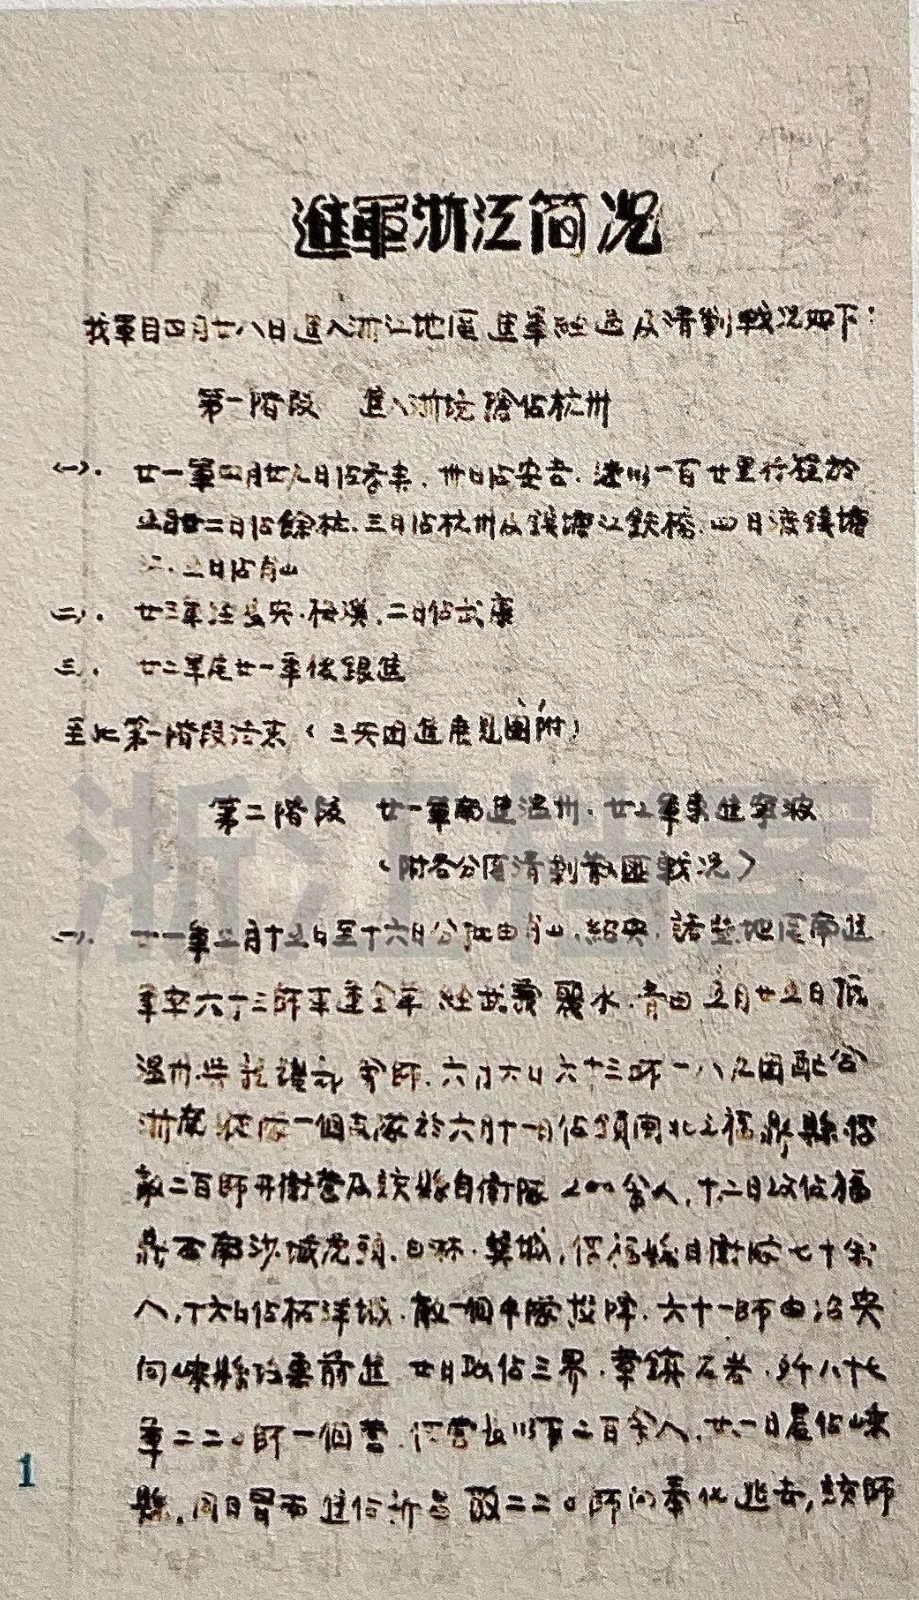 進軍浙江简况
我軍自四月廿八日進入浙江地區進軍經過及清剿战况如下：
第一階段 進入浙境搶佔杭州
(一)． 廿一軍四月廿九日佔孝丰．卅日佔安吉．一百廿里行程於
五月 二日佔餘杭．三日佔杭州及錢塘江鉄橋．四日渡錢塘
江．五日佔肖山
(二)． 廿三軍 長安．梅溪．二日佔武康
三． 廿二軍 廿一軍後跟進
至此第一階段结束（ 進展見圖附）
第二階段 廿一軍南進温州．廿二軍東進寧波
（附各分區清剿散匪战况）
(一)． 廿一軍五月十五日至十六日分批由肖山．紹興．諸暨地區南進
軍率六十三師 武義 麗水．青田 五月廿五日抵
温州 會師．六月六日六十三師一八九团配合
浙 一個支隊於六月十一日佔領閩北之福鼎縣俘
敵二百師 衛營及該縣自衛隊200余人，十二日攻佔福
鼎西南沙埕 ．白琳． 城，俘福 自衛隊七十余
人，十六日佔柘洋城．敵一個中隊投降．六十一師由
向嵊縣 前進 廿日攻佔三界．章鎮 ．歼八十七
軍二二〇師一個營．俘營長以下二百余人，廿一日晨佔嵊
縣．同日冒雨進佔新昌 敵二二〇師向奉化逃去，該師
浙江档案
1